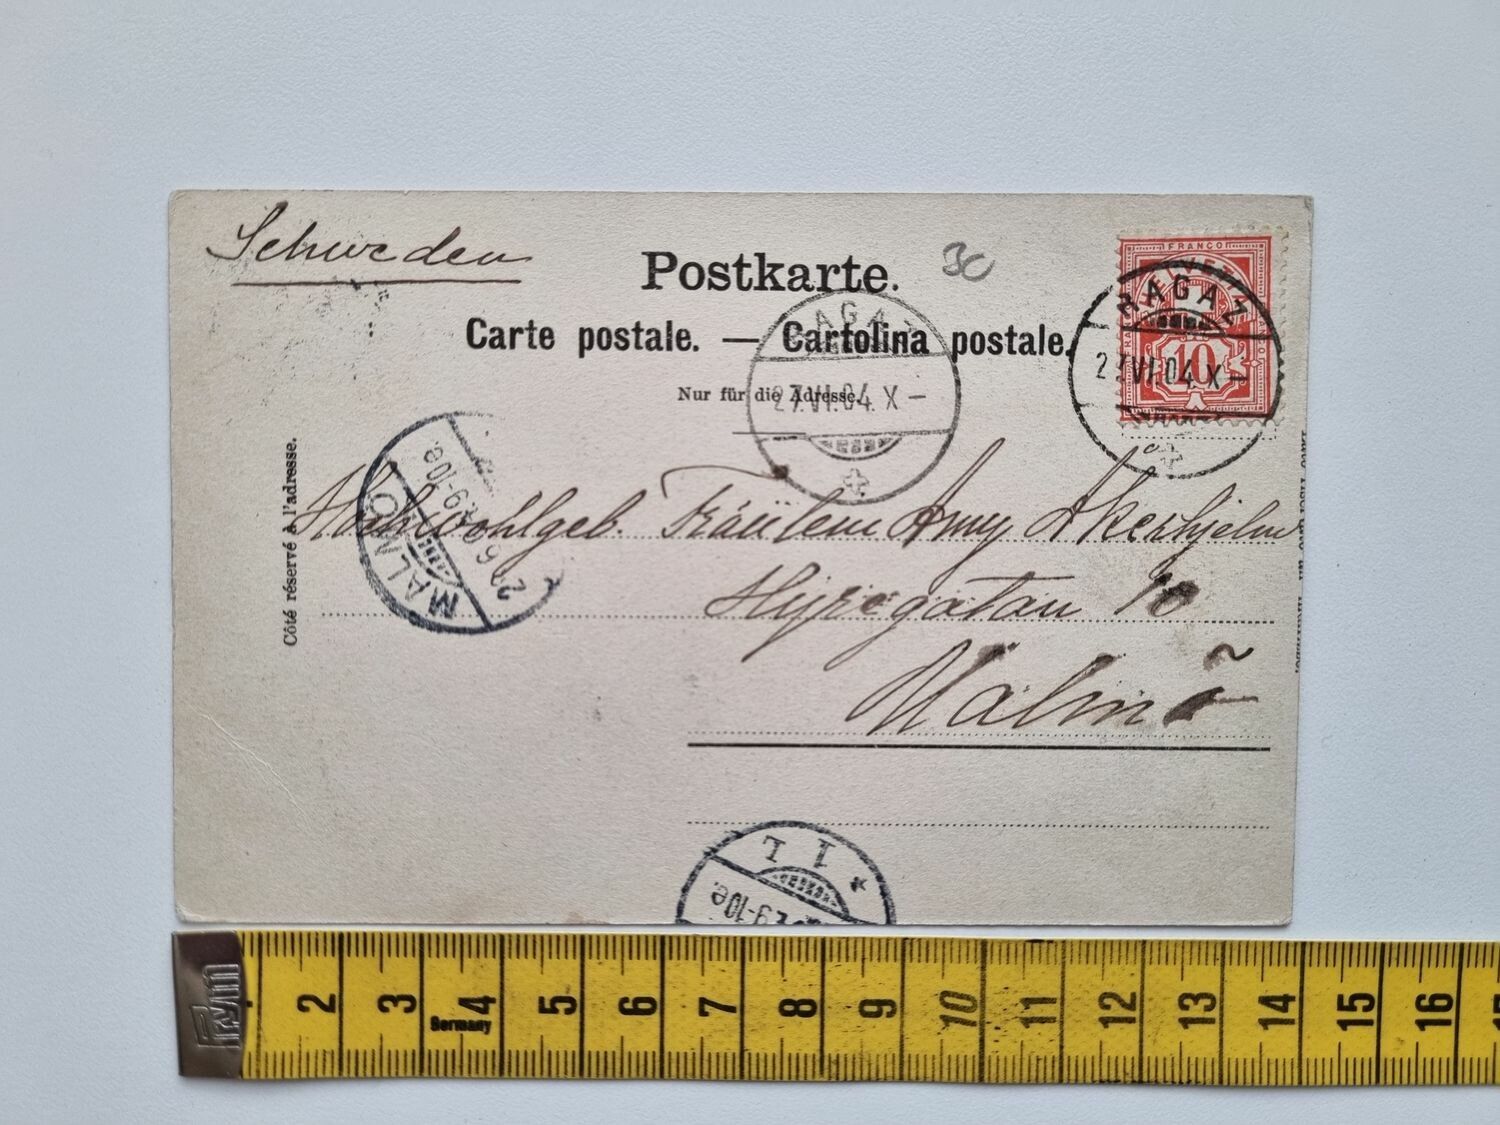 Schweden
Postkarte.
3c
Carte postale. — Cartolina postale.
Nur für die Adresse.
RAGAZ
27.VI.04.X–
FRANCO
HELVETIA
10
RAGAZ
27.VI.04.X–
Côté réservé à l'adresse.
MALMÖ
9-10e.
Hochwohlgeb. Fräulein Anny Akerhjelm
10
Malmö
1 T
9-10e.
Prym
2 3 4 5 6 7 8 9 10 11 12 13 14 15 16
Germany